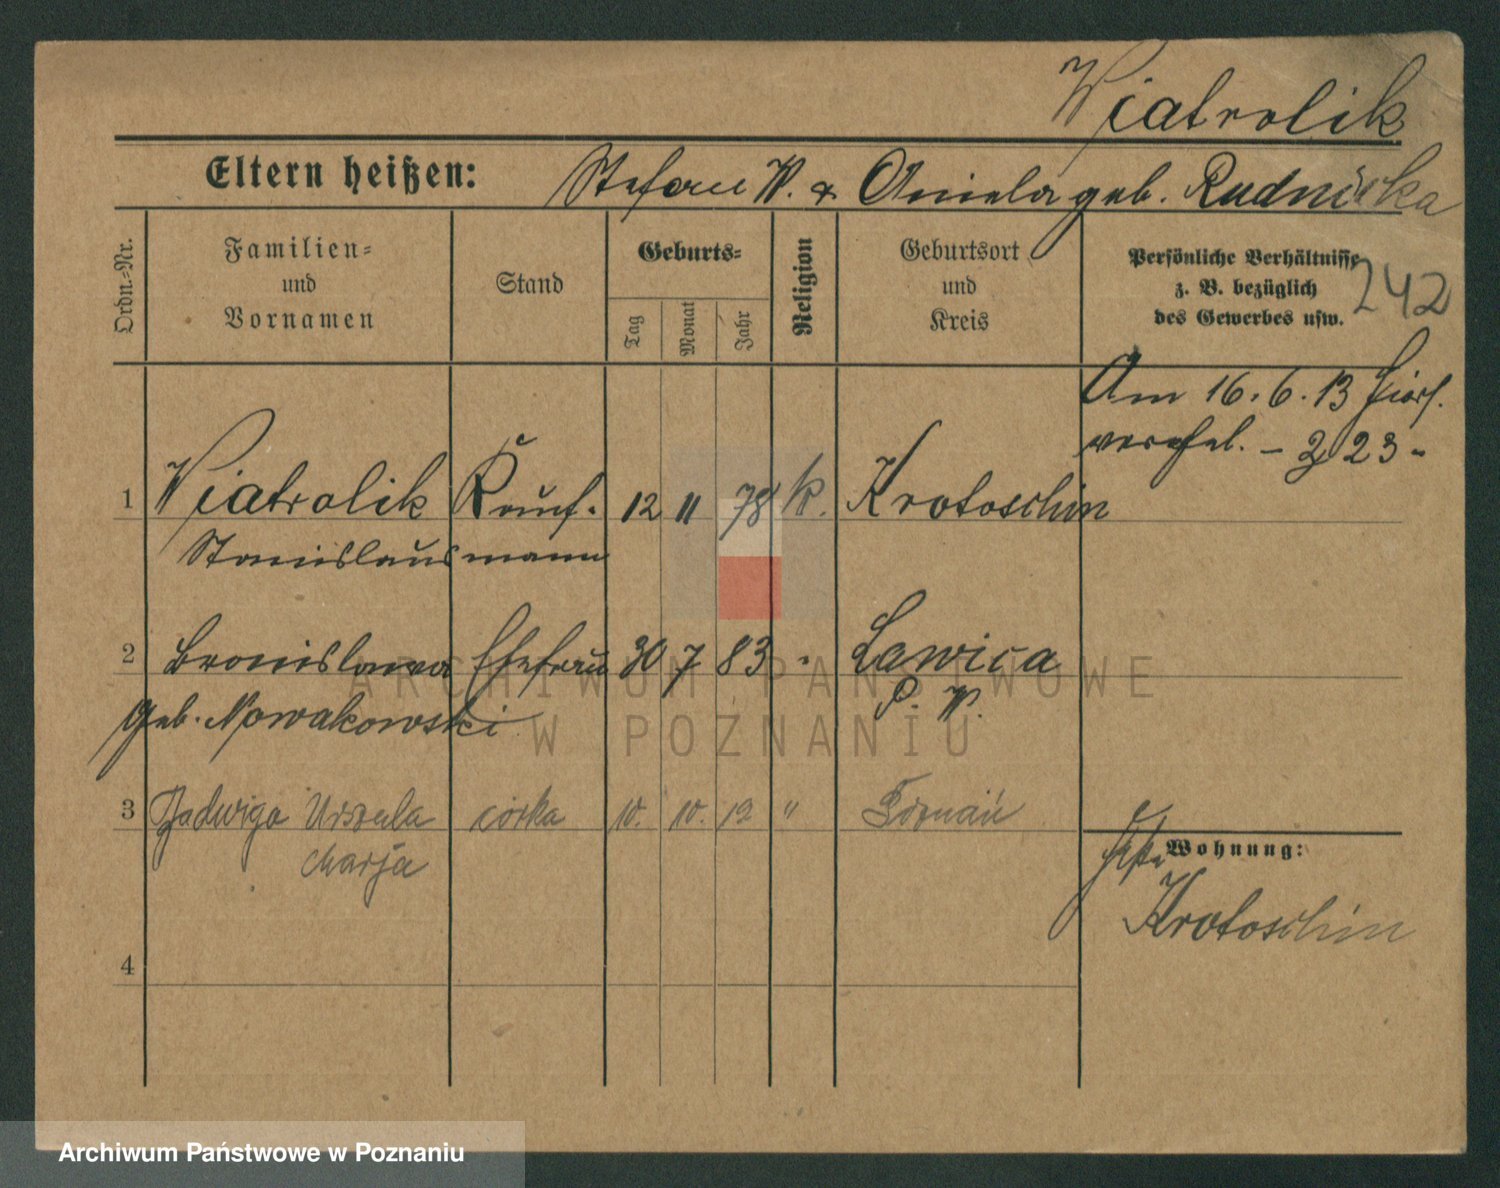 Wiatrolik
Eltern heißen: Stefan W. & Aniela geb. Rudnicka
Ordn.-Nr.
Familien- und Vornamen
Stand
Geburts-
Tag
Monat
Jahr
Religion
Geburtsort und Kreis
Persönliche Verhältnisse z. B. bezüglich des Gewerbes usw.
242
Am 16. 6. 13
23
1 Wiatrolik Kauf- 12 11 78 k. Krotoschin
Stanislaus mann
2 Bronislawa Ehefrau 30 7 83 " Lawica
geb. Nowakowski P. W.
3 Jadwiga Urszula córka 10. 10. 12 " Poznań
Marja
Wohnung:
Krotoschin
4
ARCHIWUM PAŃSTWOWE
W POZNANIU
Archiwum Państwowe w Poznaniu